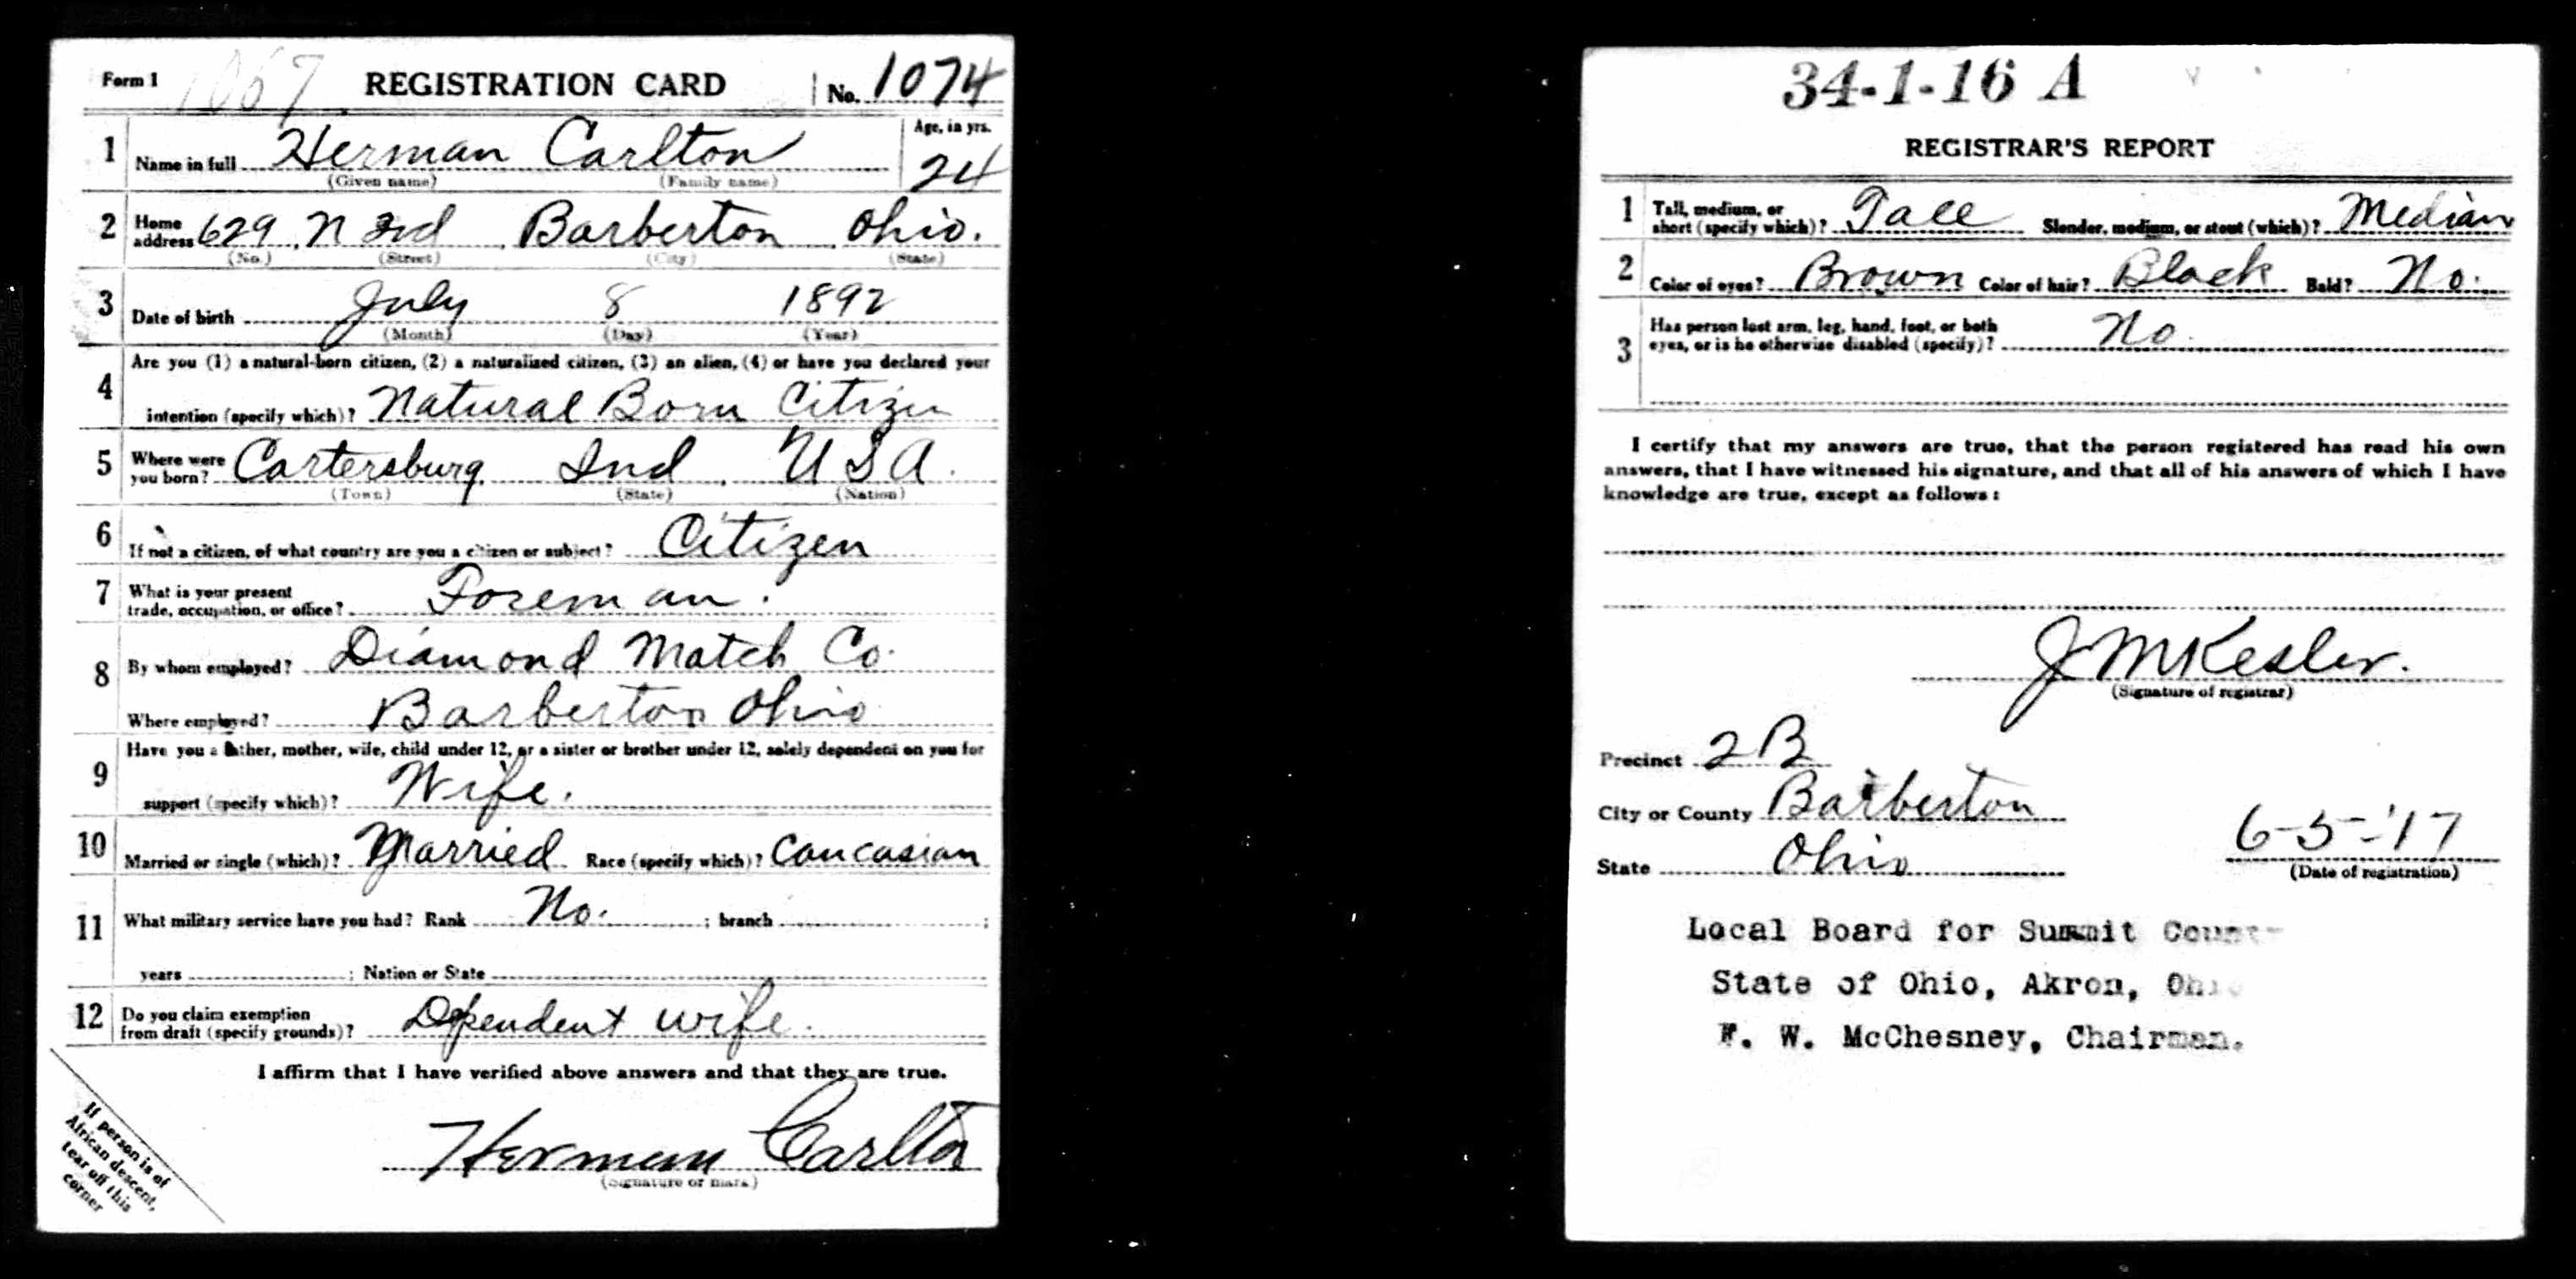 Form 1 1067 REGISTRATION CARD No. 1074
1 Name in full Herman Carlton Age, in yrs. 24
(Given name) (Family name)
2 Home address 629 N 3rd Barberton Ohio.
(No.) (Street) (City) (State)
3 Date of birth July 8 1892
(Month) (Day) (Year)
4 Are you (1) a natural-born citizen, (2) a naturalized citizen, (3) an alien, (4) or have you declared your
intention (specify which)? Natural Born Citizen
5 Where were you born? Cartersburg Ind. USA.
(Town) (State) (Nation)
6 If not a citizen, of what country are you a citizen or subject? Citizen
7 What is your present
trade, occupation, or office? Foreman.
8 By whom employed? Diamond Match Co.
Where employed? Barberton Ohio
9 Have you a father, mother, wife, child under 12, or a sister or brother under 12, solely dependent on you for
support (specify which)? Wife.
10 Married or single (which)? Married Race (specify which)? Caucasian
11 What military service have you had? Rank No. ; branch ;
years ; Nation or State
12 Do you claim exemption
from draft (specify grounds)? Dependent wife.
I affirm that I have verified above answers and that they are true.
Herman Carlton
(Signature or mark)
If person is of
African descent,
tear off this
corner
34-1-16 A
REGISTRAR'S REPORT
1 Tall, medium, or
short (specify which)? Tall Slender, medium, or stout (which)? Median
2 Color of eyes? Brown Color of hair? Black Bald? No.
3 Has person lost arm, leg, hand, foot, or both
eyes, or is he otherwise disabled (specify)? No.
I certify that my answers are true, that the person registered has read his own
answers, that I have witnessed his signature, and that all of his answers of which I have
knowledge are true, except as follows:
J M Kesler.
(Signature of registrar)
Precinct 2 B
City or County Barberton
State Ohio
6-5-'17
(Date of registration)
Local Board for Summit County
State of Ohio, Akron, Ohio
F. W. McChesney, Chairman.